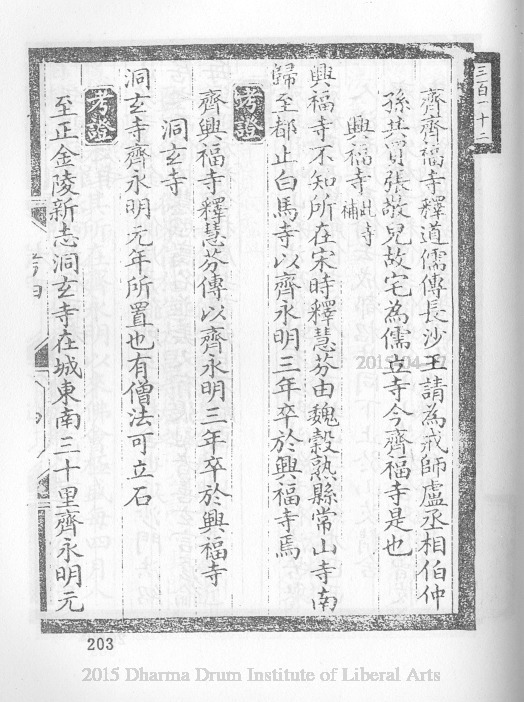 三百一十二
齊齊福寺釋道儒傳長沙王請為戒師盧丞相伯仲
孫共買張敬兒故宅為儒立寺今齊福寺是也
興福寺此寺補
興福寺不知所在宋時釋慧芬由魏穀熟縣常山寺南
歸至都止白馬寺以齊永明三年卒於興福寺焉
考證
齊興福寺釋慧芬傳以齊永明三年卒於興福寺
洞玄寺
洞玄寺齊永明元年所置也有僧法可立石
考證
至正金陵新志洞玄寺在城東南三十里齊永明元
203
2015 Dharma Drum Institute of Liberal Arts